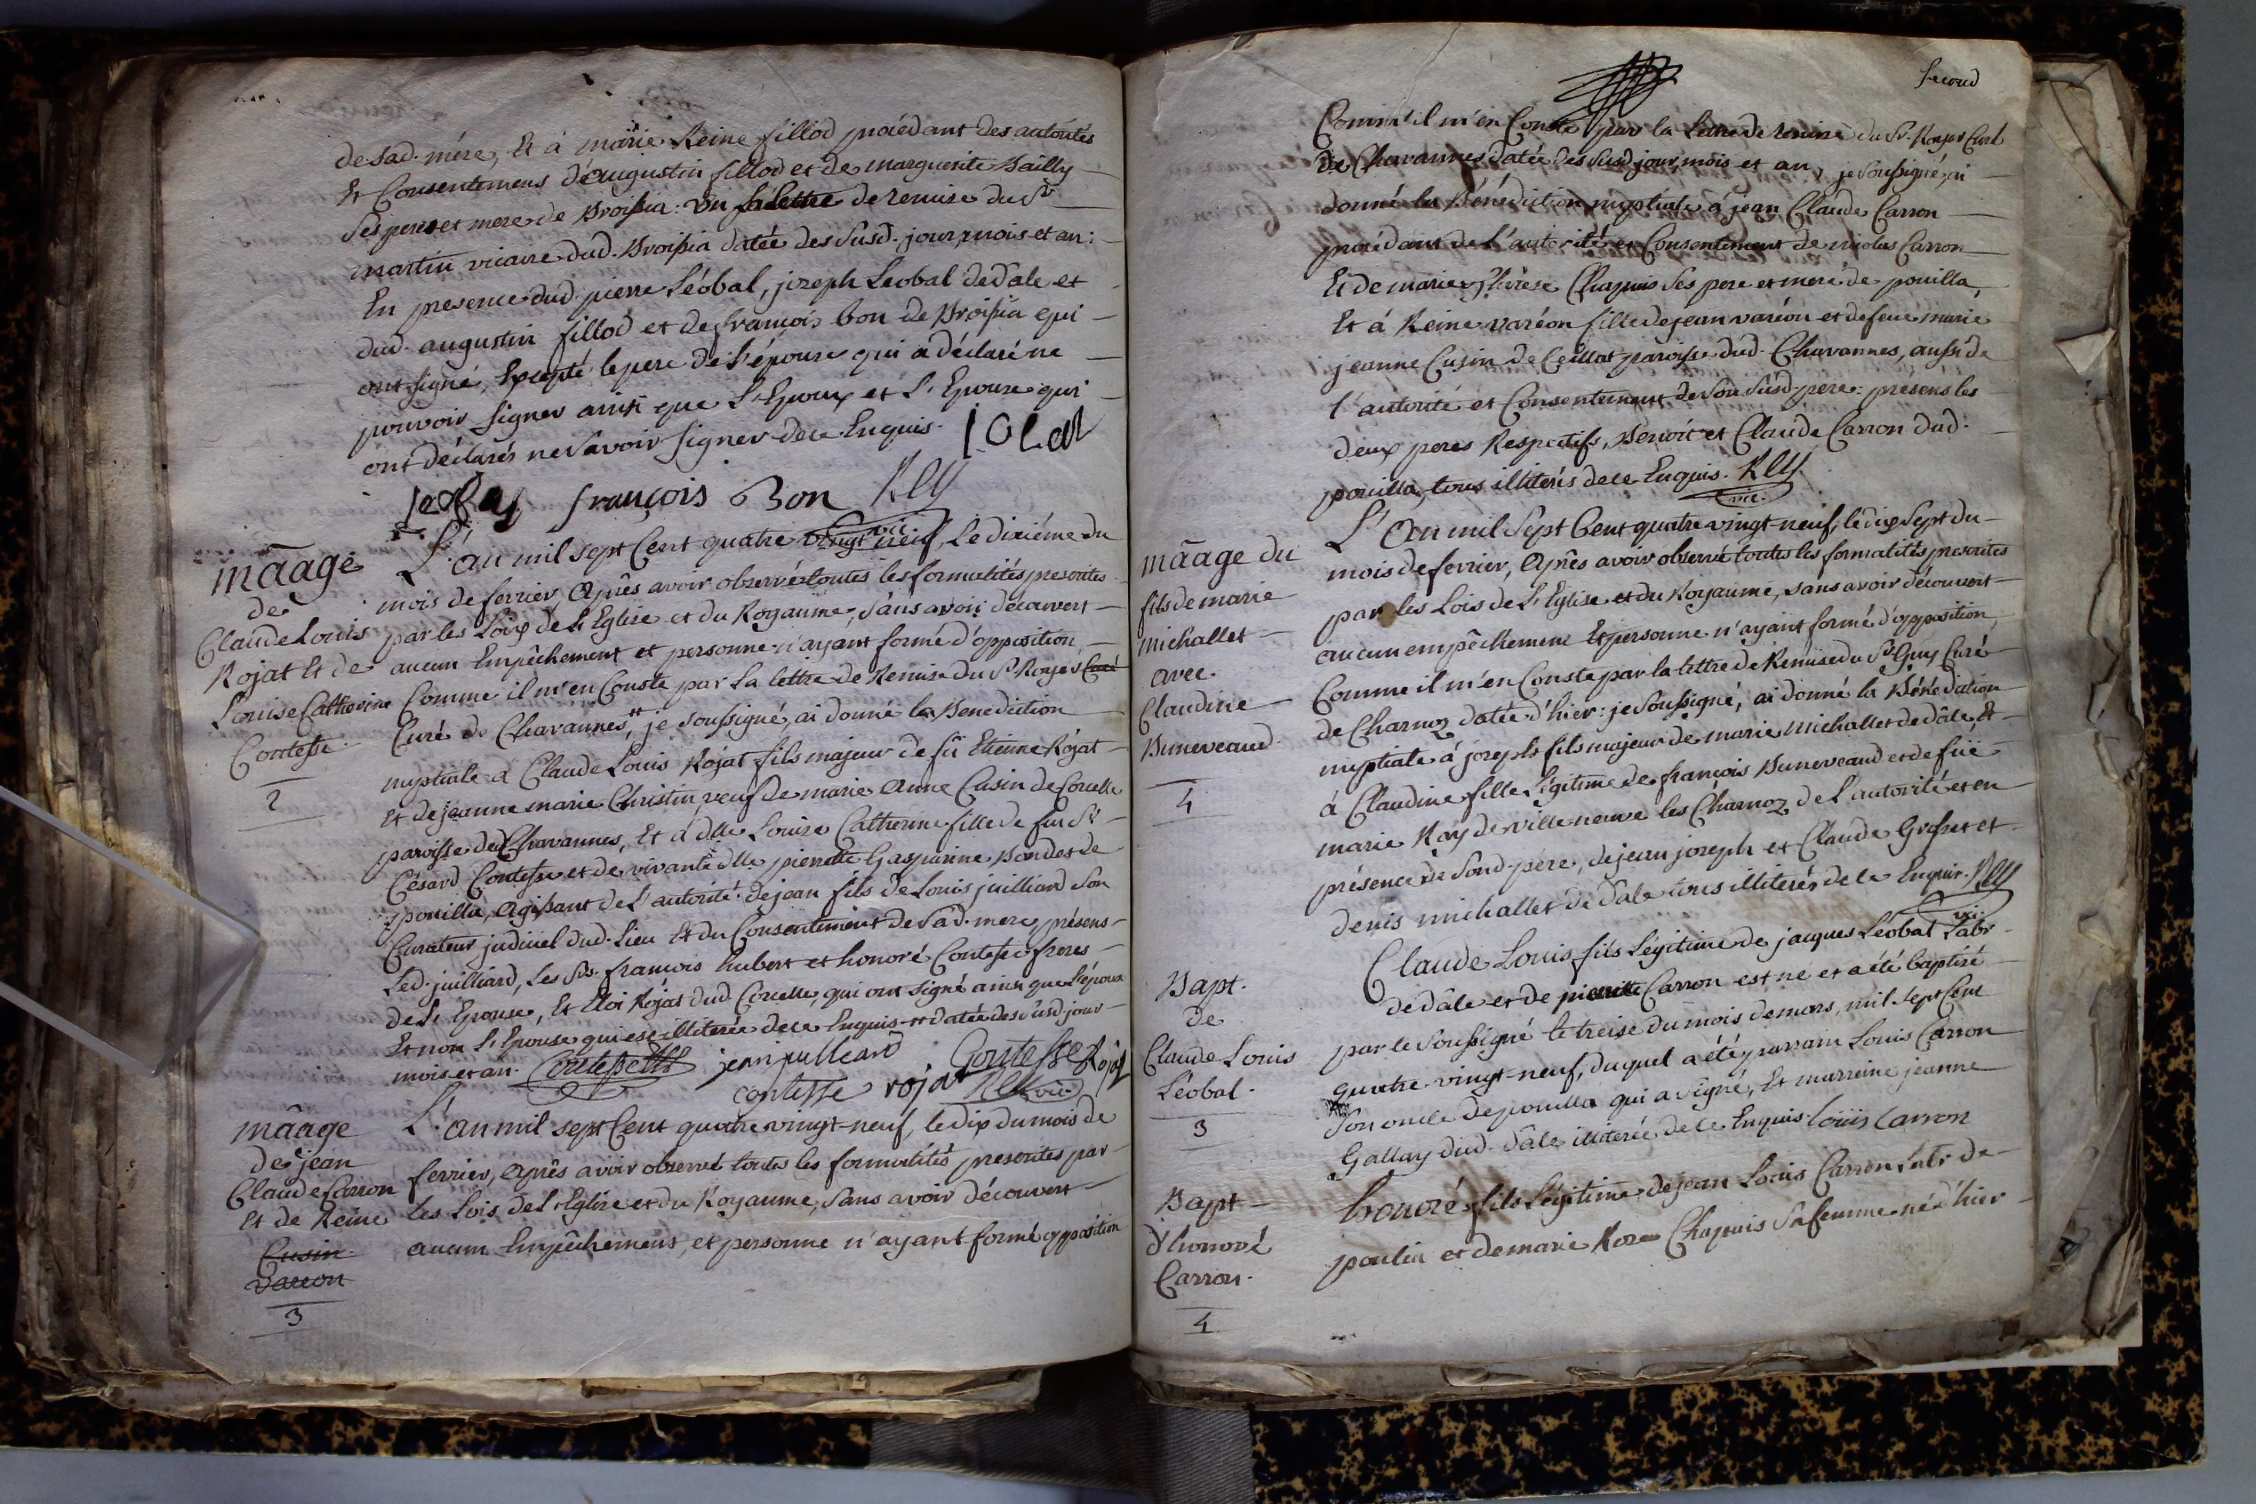 de sad. mére, Et à marie Reine fillod procédant des autorités
Et Consentemens d'augustin fillod et de marguerite Bailly
ses pere et mere de Broissia: vu la lettre de remise du Sr.
martin vicaire dud. Broissia datée des susd. jour mois et an:
En presence dud. pierre Léobal, joseph Léobal de Dâle et
dud. augustin fillod et de françois bon de Broissia qui
ont signé, Excepté le pere de l'épouse qui a déclaré ne
pouvoir signer ainsi que L'Epoux et L'Epouse qui
ont déclarés ne savoir signer de ce Enquis.
françois Bon Rey
vic.
mãage
de
Claude Louis
Rojat Et de
Louise Catherine
Contesse.
2
L'an mil sept Cent quatre vingt neuf, Le dixiéme du
mois de fevrier, Après avoir observé toutes les formalités prescrites
par les Loix de L'Eglise et du Royaume, sans avoir découvert
aucun Empêchement et personne n'ayant formé d'opposition
Comme il m'en Conste par la lettre de Remise du Sr. Royer Curé
Curé de Chavannes, je soussigné, ai donné la Benediction
nuptiale à Claude Louis Rojat fils majeur de fû Etienne Rojat
Et de jeanne marie Christin veuf de marie Anne Cusin de Corcelle
paroisse dud Chavannes, Et à dlle Louise Catherine fille de feu Sr.
Césard Contesse et de vivante dlle pierrette Gasparine Bondet de
pouilla, agissant de L'autorité de jean fils de Louis juilliard son
Curateur judiciel dud. Lieu Et du Consentement de Sad. mere, présens
Led. juilliard, Les Srs. francois hubert et honoré Contesse freres
de L'Epouse, Et Eloi Rojat dud Corcelle, qui ont signé ainsi que L'époux
Et non L'Epouse qui est illiterée de ce Enquis ++ datée des susd jour
mois et an. Contesse jean juilleard Contesse Rojat
contesse rojat Rey vic.
mãage
de jean
Claude Carron
Et de Reine
Cusin
varéon
3
L'an mil sept Cent quatre vingt-neuf, le dix du mois de
fevrier, Après avoir observé toutes les formalités prescrites par
les Lois de L'Eglise et du Royaume, sans avoir découvert
aucun Empêchemens, et personne n'ayant formé opposition
second
Comme il m'en Conste par la Lettre de remise du Sr. Royer Curé
de Chavannes datée des susd jour, mois et an, je soussigné, ai
donné la Bénédiction nuptiale à jean Claude Carron
procédant de L'autorité et Consentement de nicolas Carron
Et de marie thérèse Chapuis ses pere et mere de pouilla,
Et à Reine varéon fille de jean varéon et de feue marie
jeanne Cusin de Ceillat paroisse dud. Chavannes, aussi de
l'autorité et Consentement de son susd. pere: présens les
deux peres Respectifs, Benoit et Claude Carron dud.
pouilla, tous illiterés de ce Enquis. Rey
vic.
mãage du
fils de marie
michallet
avec
Claudine
Buneveaud.
4
L'an mil sept Cent quatre vingt-neuf, le dix sept du
mois de fevrier, Après avoir observé toutes les formalités prescrites
par les Lois de L'Eglise et du Royaume, sans avoir découvert
aucun empêchement Et personne n'ayant formé d'opposition,
Comme il m'en Conste par la lettre de Remise du Sr. Guy Curé
de Charnoz datée d'hier: je soussigné, ai donné la Bénédiction
nuptiale à joseph fils majeur de marie michallet de dâle, Et
à Claudine fille Légitime de françois Buneveaud et de fuë
marie Ray de ville neuve les Charnoz de L'autorité et en
présence de Sond. pére, de jean joseph et Claude Grosset et
denis michallet de Dâle tous illiterés de ce Enquis. Rey
vic.
Bapt.
de
Claude Louis
Léobal.
3
Claude Louis fils Légitime de jacques Léobal Labr.
de dâle et de pierrette Carron est né et a été baptisé
par le soussigné le treise du mois de mars, mil sept Cent
quatre vingt-neuf, duquel a été parrain Louis Carron
son oncle de pouilla qui a signé, Et marreine jeanne
Gallay dud. dâle illiterée de ce Enquis. Loüis Carron
Bapt
d'honoré
Carron.
4
honoré fils Légitime de jean Louis Carron Labr de
poulia et de marie Rose Chapuis sa femme né d'hier